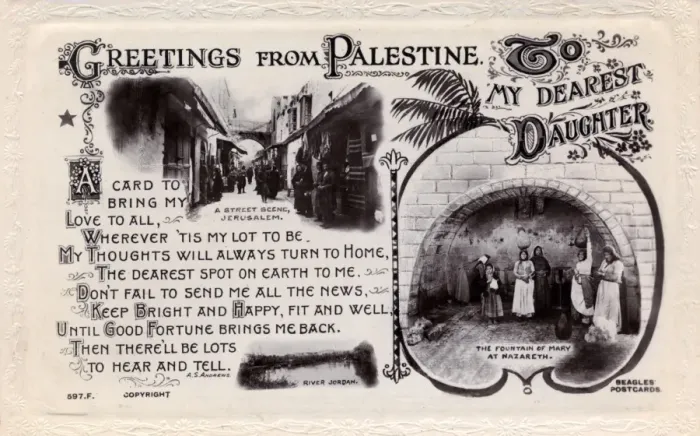 GREETINGS FROM PALESTINE.
TO
MY DEAREST
DAUGHTER.
A STREET SCENE,
JERUSALEM.
A CARD TO
BRING MY
LOVE TO ALL,
WHEREVER 'TIS MY LOT TO BE.
MY THOUGHTS WILL ALWAYS TURN TO HOME,
THE DEAREST SPOT ON EARTH TO ME.
DON'T FAIL TO SEND ME ALL THE NEWS,
KEEP BRIGHT AND HAPPY, FIT AND WELL,
UNTIL GOOD FORTUNE BRINGS ME BACK.
THEN THERE'LL BE LOTS
TO HEAR AND TELL.
A.S. ANDREWS
RIVER JORDAN.
THE FOUNTAIN OF MARY
AT NAZARETH.
597.F.
COPYRIGHT
BEAGLES'
POSTCARDS.